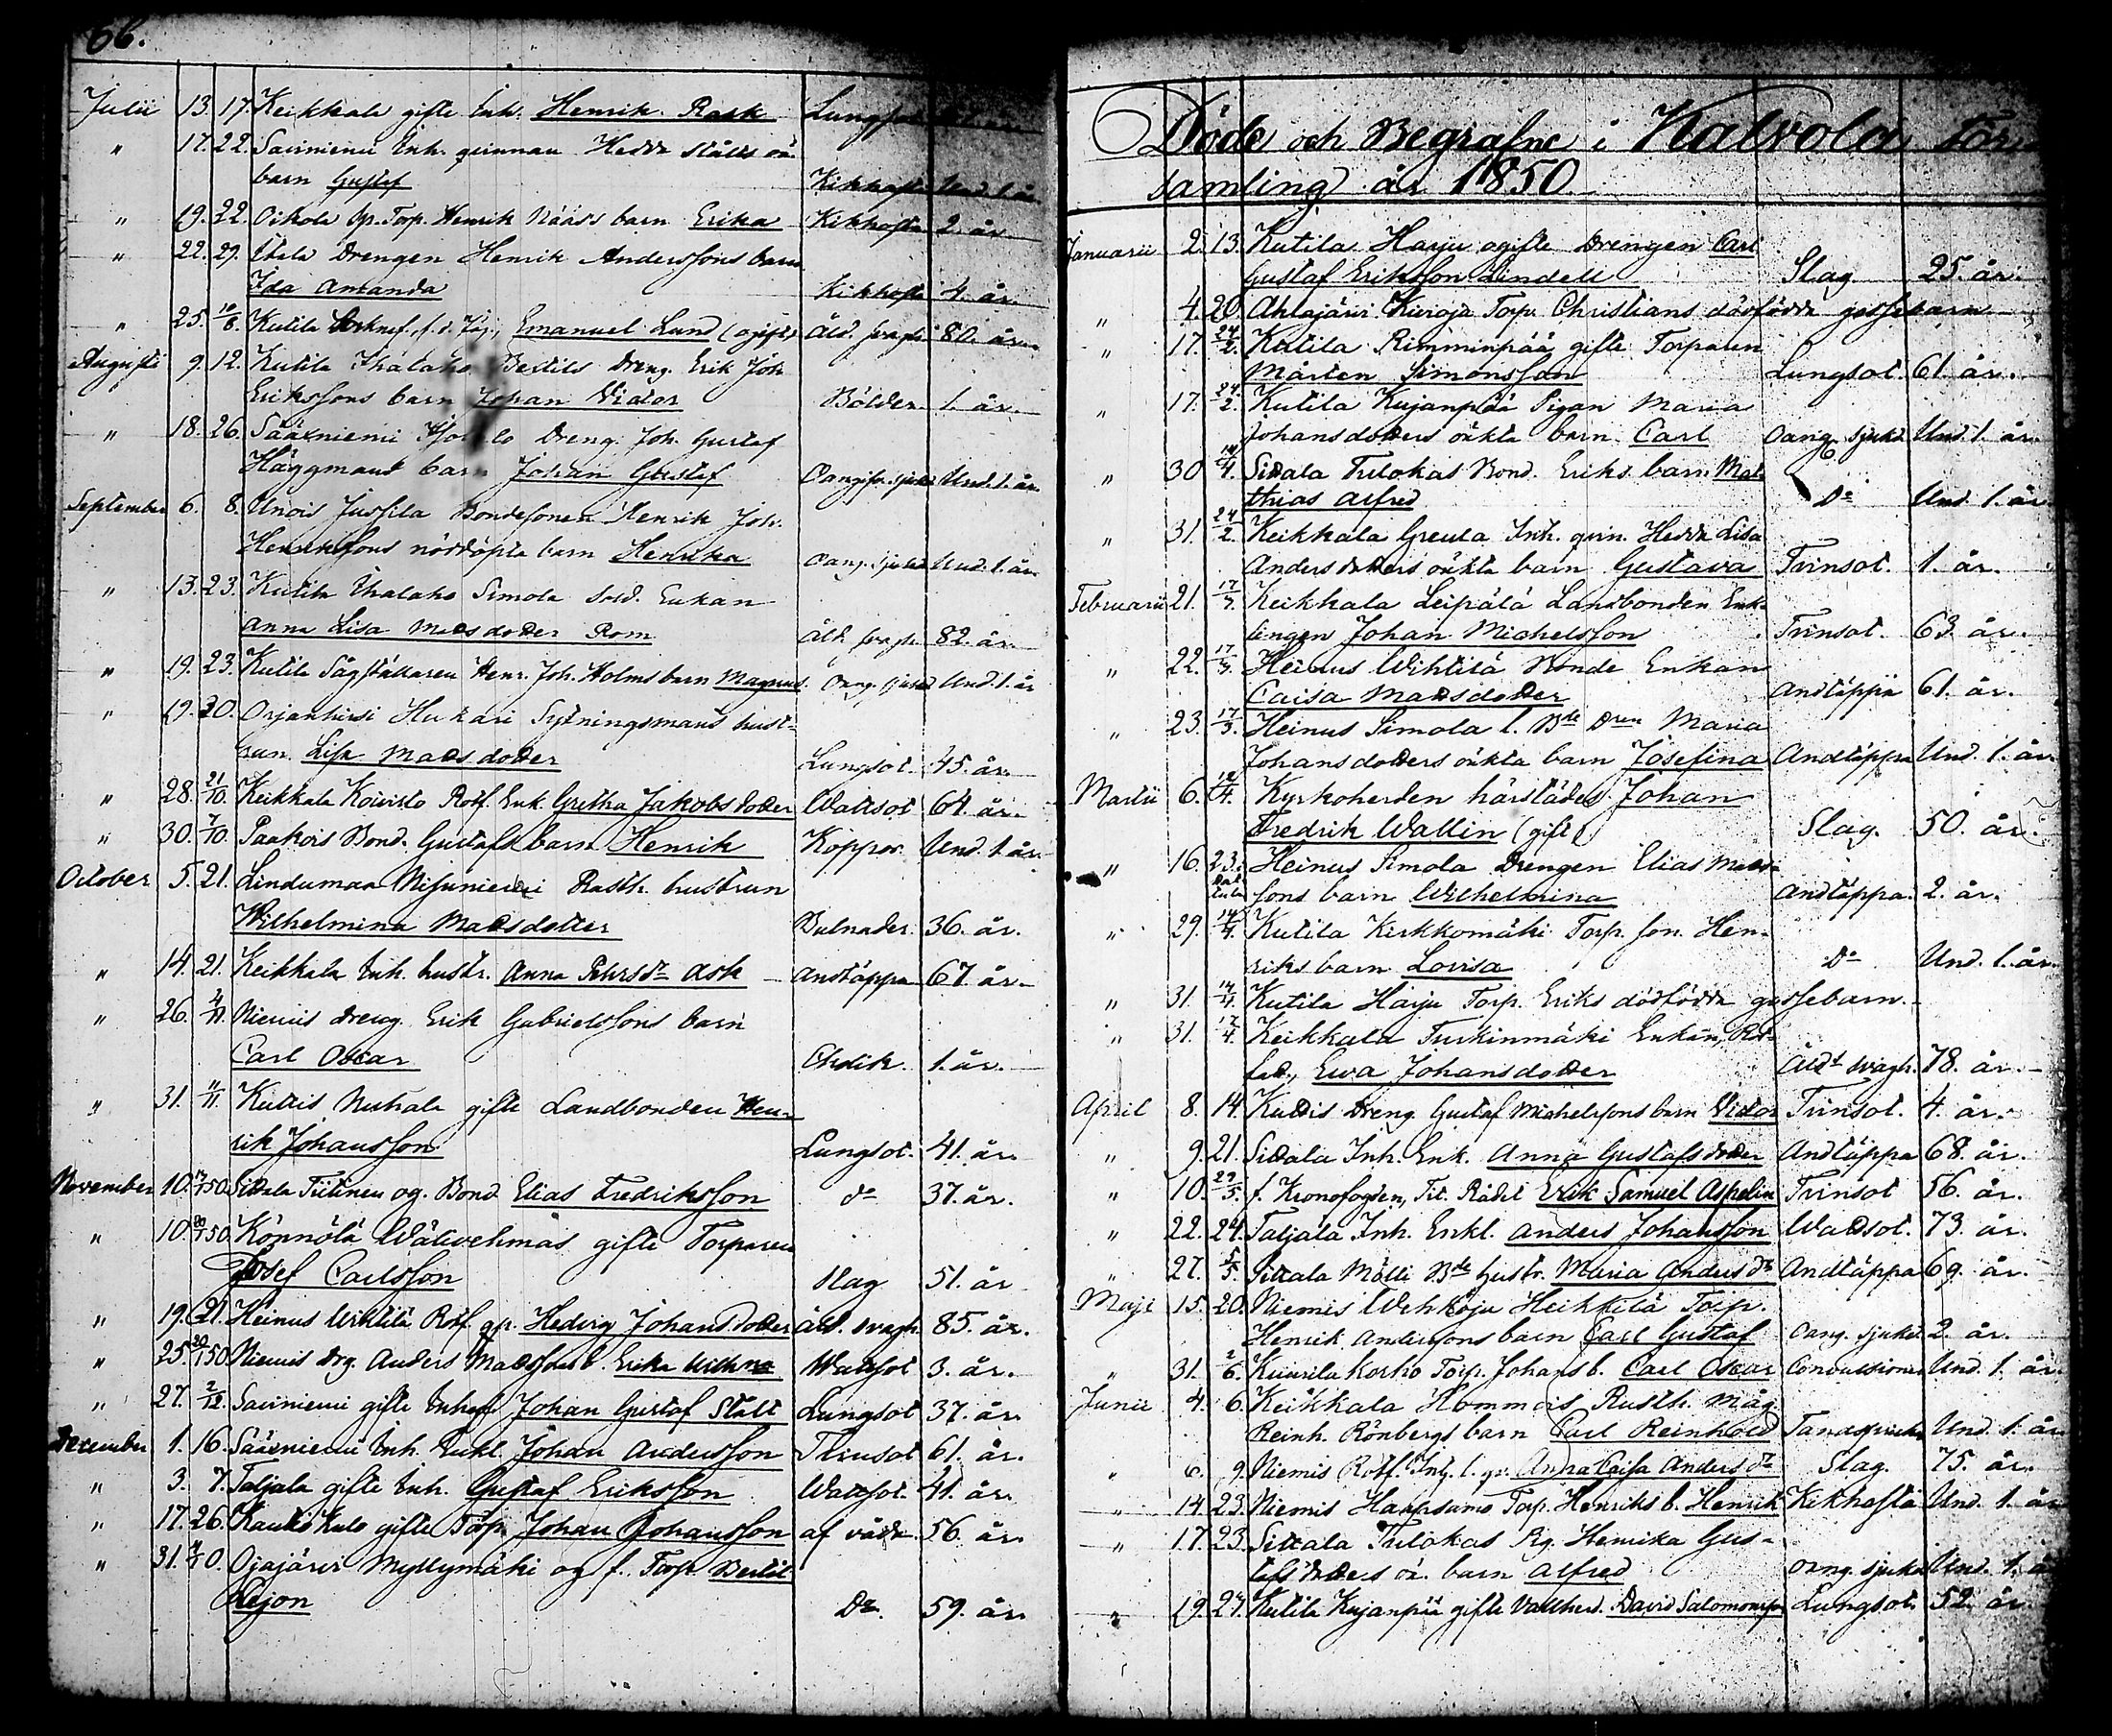 66.
Julii 13. 17. Keikkala gifte Inh. Henrik Rask
" 17. 22. Saviniemi Inh. qvinnan Hedda Ståhls oä.
barn Gustaf Kikhosta Und. 1. år
" 19. 22. Oikola Torp. Henrik Nääss barn Erika Kikhosta 2. år
" 22. 29. Drengen Henrik Anderssons barn
Ida Amanda Kikhosta 4. år.
" 25. Kutila f. d. Emanuel Lund (ogift) Åld. svagh. 80. år.
Augusti 9. 12. Kutila Bertils Dreng. Erik Joh.
Erikssons barn Johan Victor Bölder. 1. år.
" 18. 26. Sääxniemi Dreng. Joh. Gustaf
Häggmans barn Johan Gustaf Und. 1. år
September 6. 8. Unois Jussila Bondesonen Henrik Joh.
Henrikssons nöddöpta barn Henrika Oang. sjukd. Und. 1. år.
" 13. 23. Kutila Simola Sold. Enkan
Anna Lisa Madsdotter Rom Åld. svagh. 82. år.
" 19. 23. Kutila Sågställaren Henr. Joh. Holms barn Magnus. Oang. sjukd. Und. 1. år
" 19. 30. Orjanhirsi Hukari Sytningsmans hust-
run Lisa Madsdotter Lungsot. 45. år.
" 28. 21/10. Keikkala Koivisto Rotf. Enk. Gretha Jakobsdotter Wattsot 64. år.
" 30. 7/10. Paakois Bond. Gustafs barn Henrik Koppor. Und. 1 år
October 5. 21. Lindumaa Nisuniemi Rusth. hustrun
Wilhelmina Madsdotter Bulnader. 36. år.
" 14. 21. Keikkala Inh. hustr. Anna Pehrsdr Ask Andtäppa 67. år.
" 26. Niemis Dreng. Erik Gabrielssons barn
Carl Oscar 1. år.
" 31. 11/11. Kuttis gifte Landbonden Hen-
rik Johansson Lungsot. 41. år.
November 10. Sittala Tiitinen og. Bond Elias Fredriksson do 37. år.
" 10. Könnölä Wälivehmas gifte Torparen
Josef Carlsson Slag 51. år
" 19. 21. Heinus Wihtilä Rotf. qv. Hedvig Johansdotter Åld. svagh. 85. år.
" 25. Niemis Drg. Anders Madssons b. Erika Wilhna Wattsot 3. år.
" 27. 2/12. Saviniemi gifte Inhys Johan Gustaf Stålt Lungsot 37. år.
December 1. 16. Sääxniemi Inh. Enkl. Johan Andersson Tvinsot 61. år.
" 3. 7. Taljala gifte Inh. Gustaf Eriksson Wattsot. 41. år.
" 17. 26. gifte Torp. Johan Johansson af våda. 56. år.
" 31. Ojajärvi Myllymäki og f. Torp. Bertil
Lejon Do. 59. år.
Döde och Begrafne i Kalvola För-
samling år 1850.
Januarii 2. 13. Kutila Harju ogifte Drengen Carl
Gustaf Eriksson Lindell Slag. 25. år.
" 4. 20. Ahlajärvi Kuroja Torp. Christians dödfödda gossebarn
" 17. 24/2. Kutila Rimminpää gifte Torparen
Mårten Simonsson Lungsot. 61. år.
" 17. 24/2. Kutila Kujanpää Pigan Maria
Johansdotters oäkta barn Carl Oang. sjukd. Und. 1. år.
" 30. 14/4. Sittala Tulokas Bond. Eriks barn Mat-
thias Alfred Do Und. 1. år
" 31. 24/2. Keikkala Greula Inh. qvin. Hedda Lisa
Andersdotters oäkta barn Gustava Tvinsot. 1. år.
Februarii 21. 17/3. Keikkala Leipälä Landbonden Enk-
lingen Johan Michelsson Tvinsot. 63. år.
" 22. 17/3. Heinus Wihtilä Bonde Enkan
Caisa Madsdotter Andtäppa 61. år.
" 23. 17/3. Heinus Simola l. Bde Dren Maria
Johansdotters oäkta barn Josefina Andtäppa Und. 1. år
Martii 6. Kyrkoherden härstädes Johan
Fredrik Wallin (gift). Slag. 50. år.
" 16. 23. Heinus Simola Drengen Elias Mads-
sons barn Wilhelmina Andtäppa. 2. år.
" 29. 14/4. Kutila Kirkkomäki Torp. son. Hen-
riks barn Lovisa Do Und. 1. år.
" 31. 14/4. Kutila Harju Torp. Eriks dödfödda gossebarn.
" 31. 17/4. Keikkala Turkinmäki Enkan, Rot-
fat., Ewa Johansdotter Åldt svagh. 78. år.
April 8. 14. Kuttis Dreng. Gustaf Michelssons barn Victor Tvinsot. 4. år.
" 9. 21. Sittala Inh. Enk. Anna Gustafsdotter Andtäppa 68. år.
" 10. 29/5. f. Kronofogden, Tit. Rådet Erik Samuel Aspelin Tvinsot 56. år.
" 22. 24. Taljala Inh. Enkl. Anders Johansson Wattsot. 73. år.
" 27. 5/5. Sittala Mölli Bde hustr. Maria Andersdr Andtäppa 69. år.
Maji 15. 20. Niemis Wehkoja Heikkilä Torp.
Henrik Anderssons barn Carl Gustaf Oang. sjukd. 2. år.
" 31. 2/6. Kuurila Korko Torp. Johans b. Carl Oscar Convulsioner Und. 1. år
Junii 4. 6. Keikkala Hommois Rusth. Måg
Reinh. Rönbergs barn Carl Reinhold Tandsprickn. Und. 1. år
" 6. 9. Niemis Rotf. Inh. l. qv. Anna Caisa Andersdr Slag. 75. år.
" 14. 23. Niemis Haapsamo Torp. Henriks b. Henrik Kikhosta Und. 1. år
" 17. 23. Sittala Tulokas Pig. Henrika Gus-
tafsdotters oä. barn Alfred Oang. sjukd. Und. 1. år
" 19. 24. Kutila Kujanpää gifte Vallherd. David Salomonsson Lungsot. 52. år.